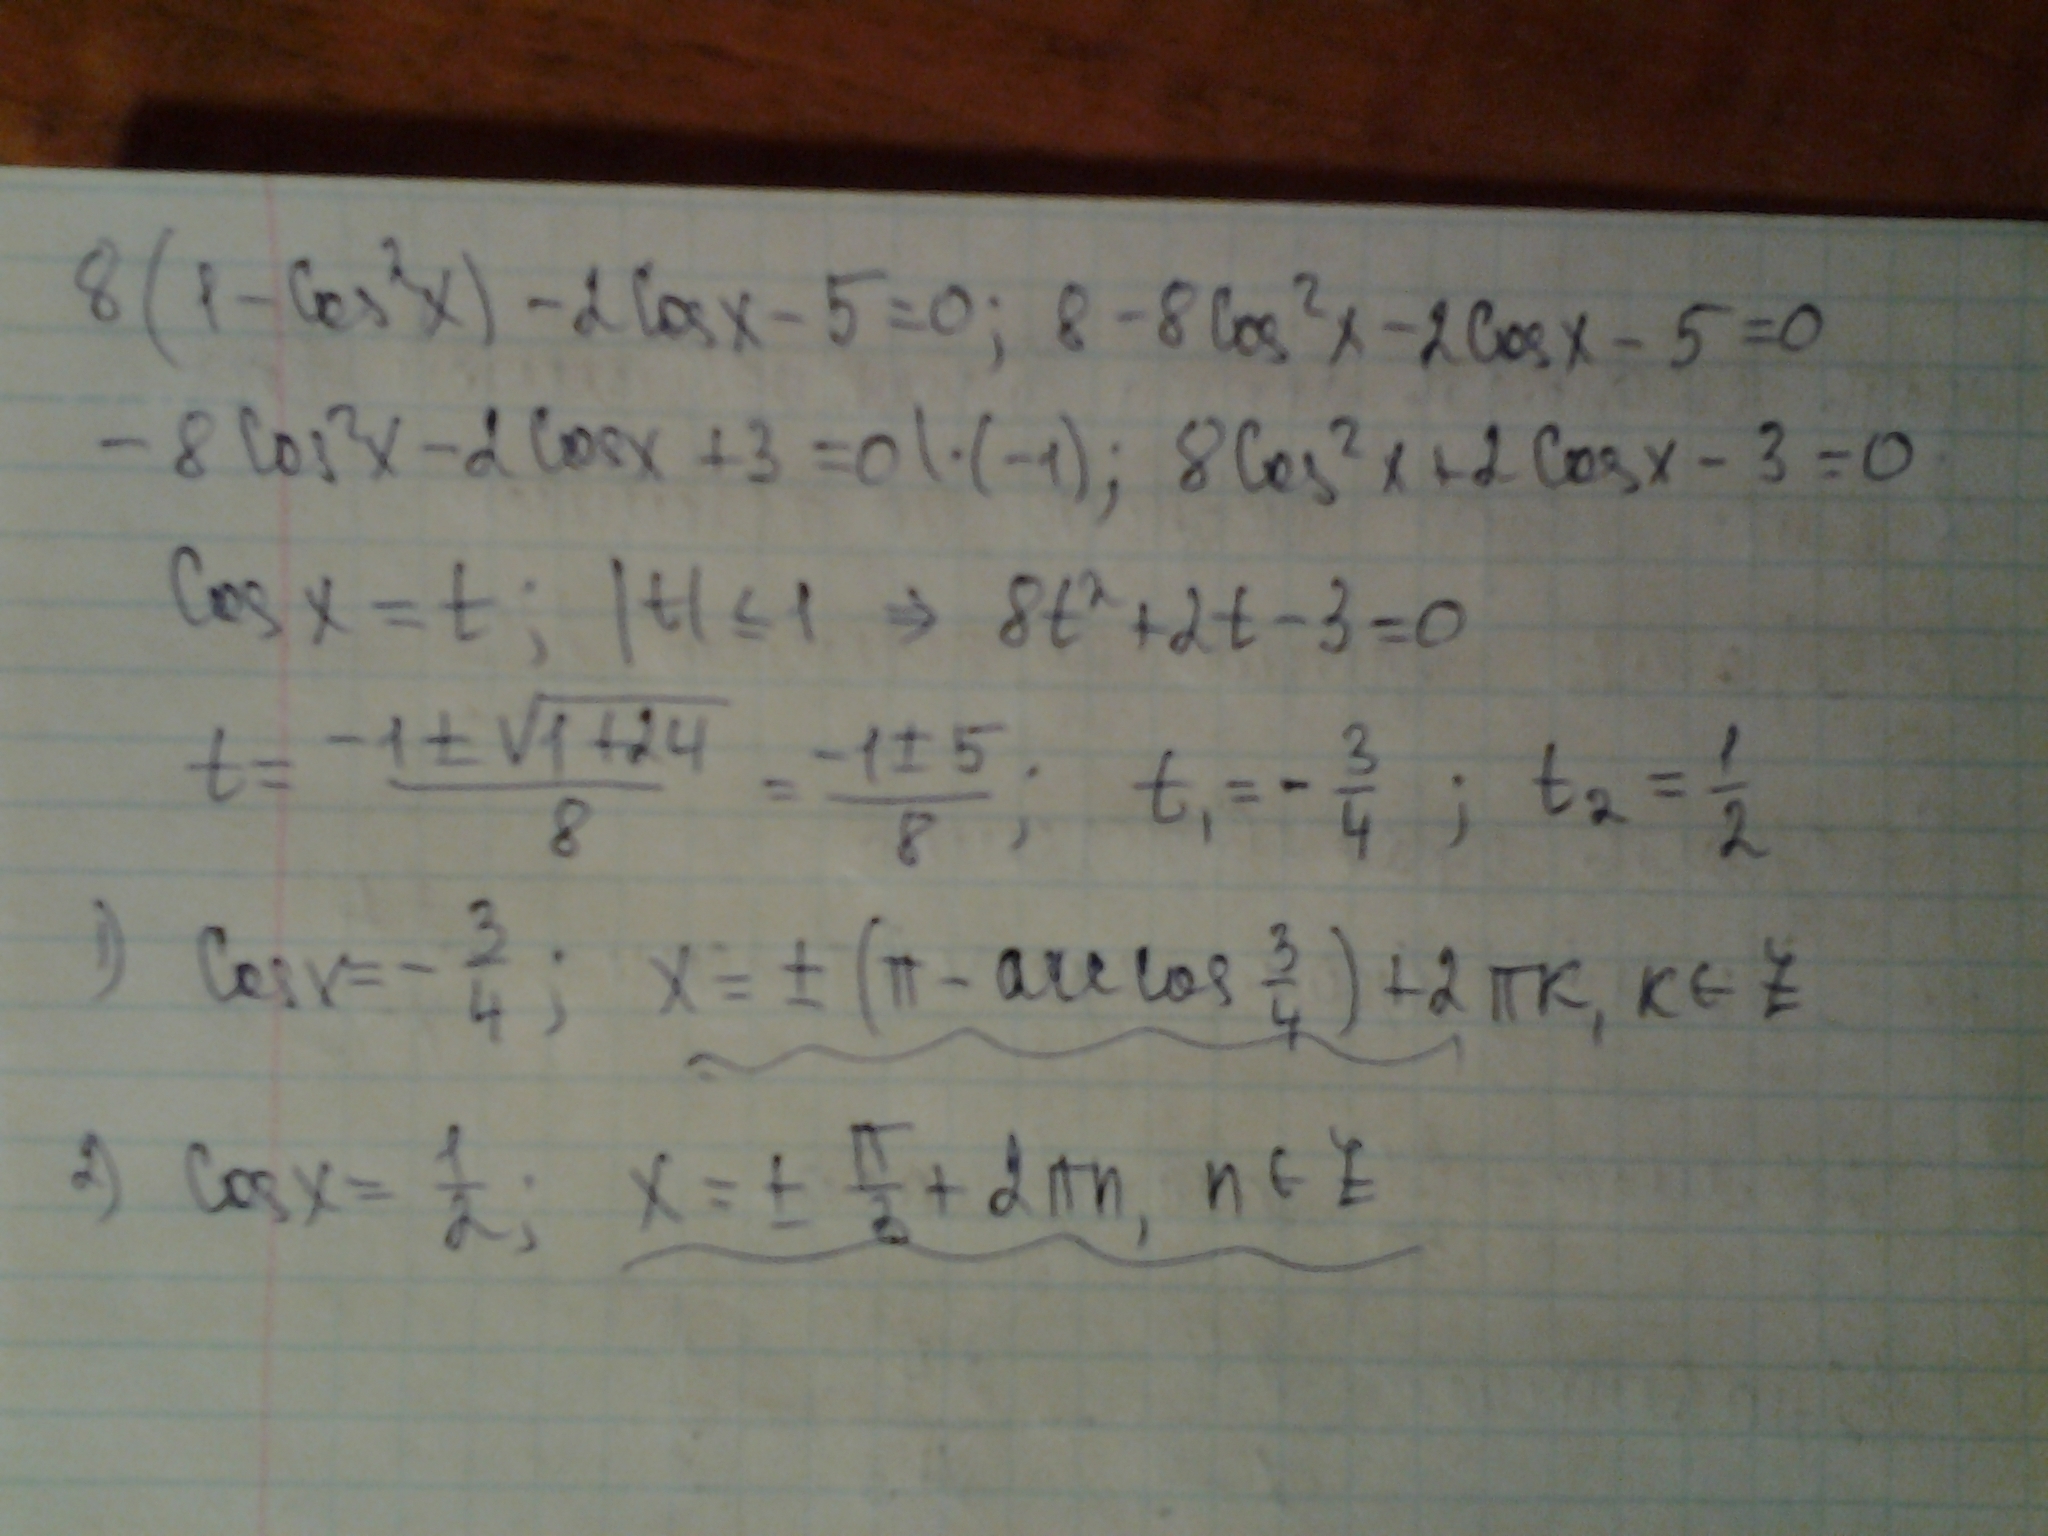 8(1-Cos²x)-2Cosx-5=0; 8-8Cos²x-2Cosx-5=0
-8Cos²x-2Cosx+3=0|·(-1); 8Cos²x+2Cosx-3=0
Cosx=t; |t|≤1 ⇒ 8t²+2t-3=0
t=(-1±√(1+24))/8=(-1±5)/8; t₁=-3/4; t₂=1/2
1) Cosx=-3/4; x=±(π-arccos 3/4)+2πk, k∈Z
2) Cosx=1/2; x=±π/3+2πn, n∈Z